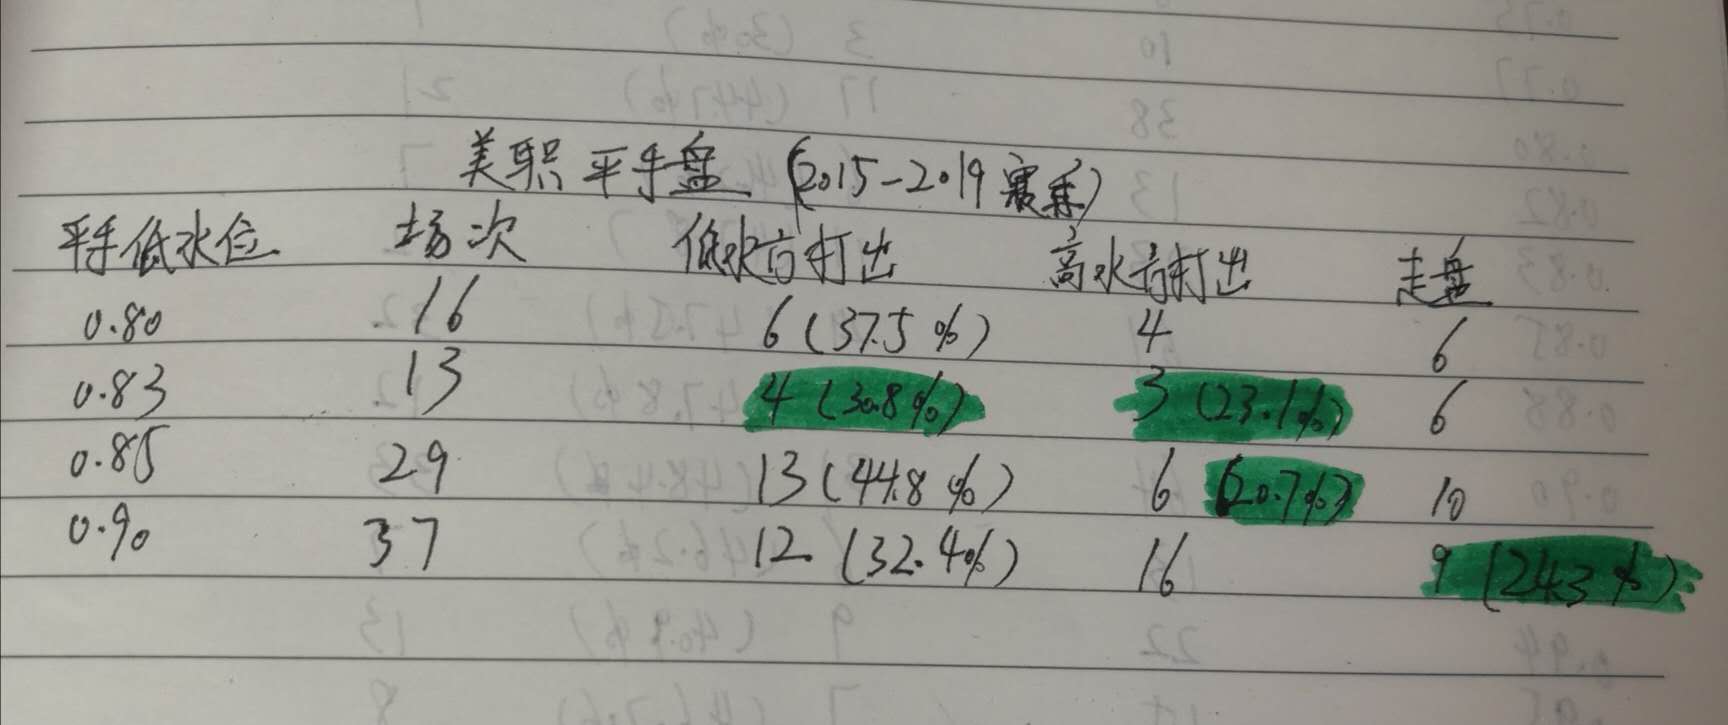 美职平手盘(2015-2019赛季)
平手低水位 场次 低水方打出 高水方打出 走盘
0.80 16 6(37.5%) 4 6
0.83 13 4(30.8%) 3(23.1%) 6
0.85 29 13(44.8%) 6(20.7%) 10
0.90 37 12(32.4%) 16 9(24.3%)